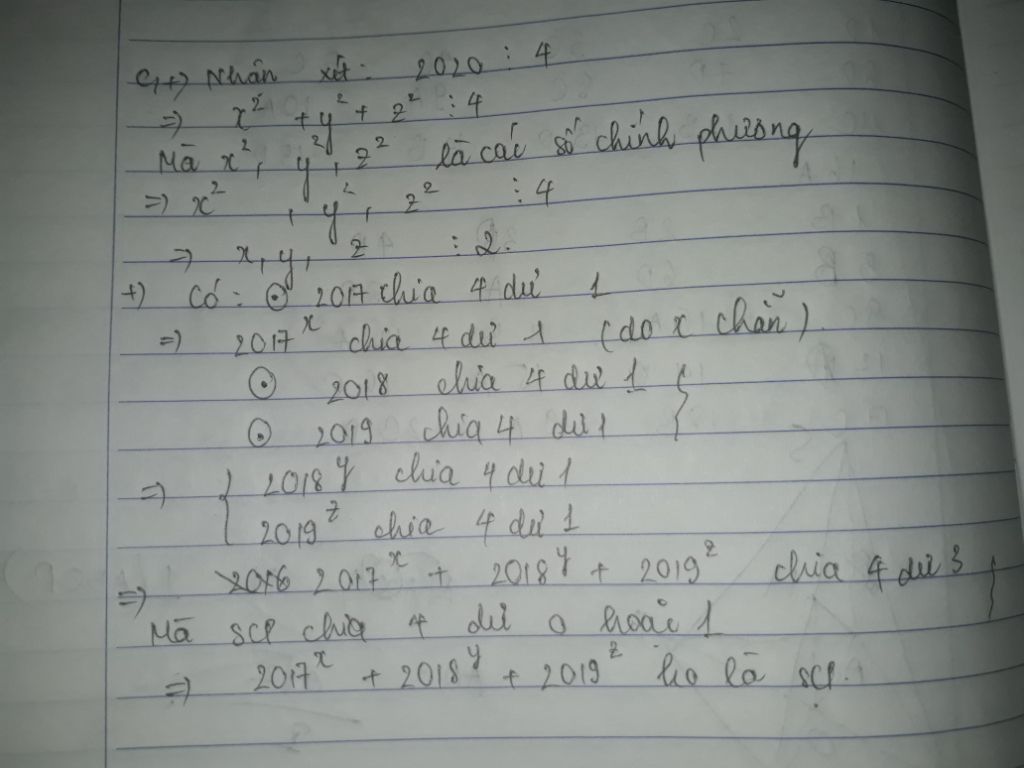 C, +) Nhận xét: 2020 ⋮ 4
=) x² + y² + z² ⋮ 4
Mà x², y², z² là các số chính phương
=) x², y², z² ⋮ 4
=) x, y, z ⋮ 2.
+) Có: ⊙ 2017 chia 4 dư 1
=) 2017^x chia 4 dư 1 (do x chẵn)
⊙ 2018 chia 4 dư 1 }
⊙ 2019 chia 4 dư 1
=) { 2018^y chia 4 dư 1
2019^z chia 4 dư 1
=) 2016 2017^x + 2018^y + 2019^z chia 4 dư 3 }
Mà scp chia 4 dư 0 hoặc 1
=) 2017^x + 2018^y + 2019^z ko là scp.